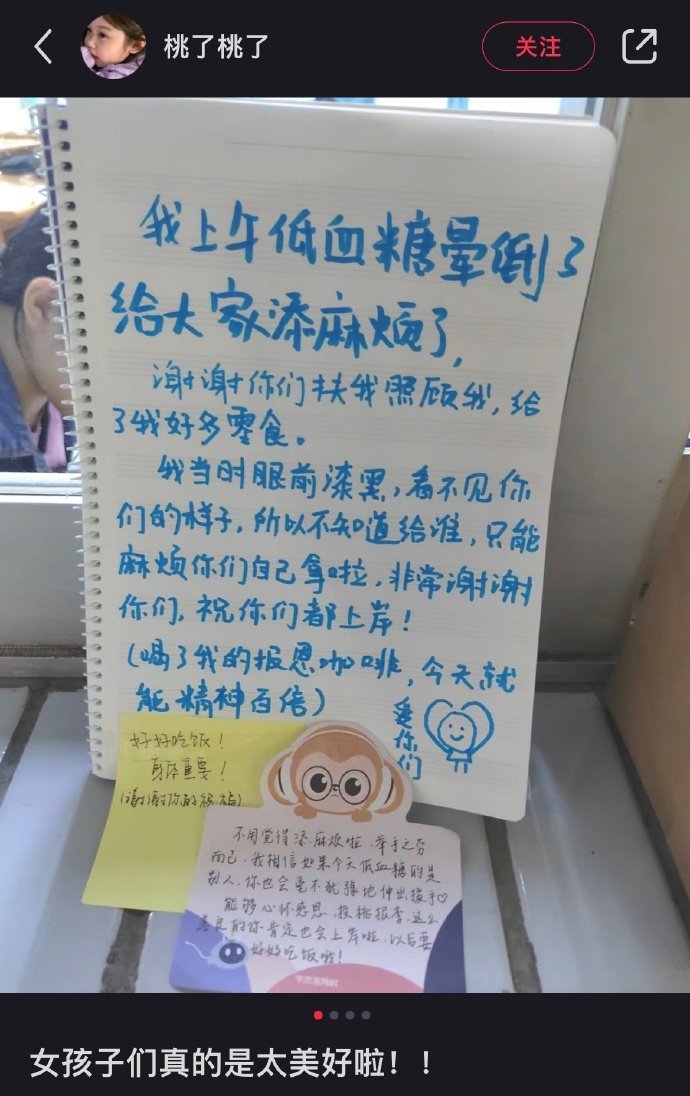 桃了桃了
关注
我上午低血糖晕倒了
给大家添麻烦了,
谢谢你们扶我照顾我,给
了我好多零食。
我当时眼前漆黑,看不见你
们的样子,所以不知道给谁,只能
麻烦你们自己拿啦,非常谢谢
你们,祝你们都上岸!
(喝了我的报恩咖啡,今天就
能精神百倍)
爱你们
好好吃饭!
身体重要!
(谢谢你的祝福)
不用觉得添麻烦啦 举手之劳
而已,我相信如果今天低血糖的是
别人,你也会毫不犹豫地伸出援手♡
能够心怀感恩,投桃报李,这么
善良的你肯定也会上岸啦,以后要
好好吃饭哦!
女孩子们真的是太美好啦!!